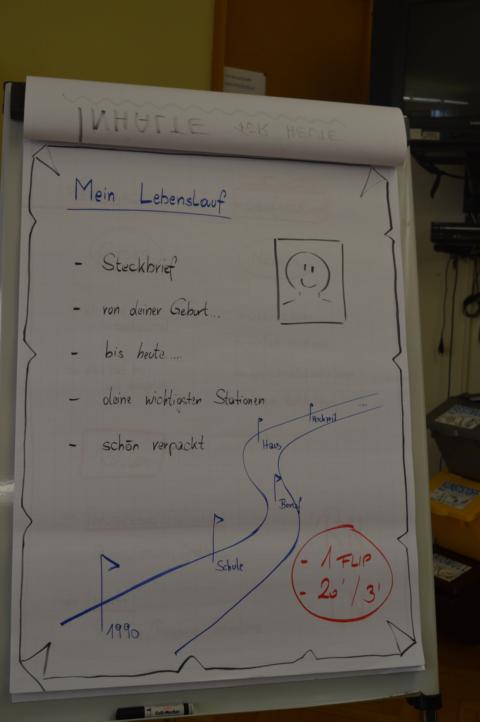 INHALTE FÜR HEUTE
Mein Lebenslauf
- Steckbrief
- von deiner Geburt...
- bis heute.....
- deine wichtigsten Stationen
- schön verpackt
Hochzeit ...
Haus
Beruf
Schule
1990
- 1 FLIP
- 20' / 3'